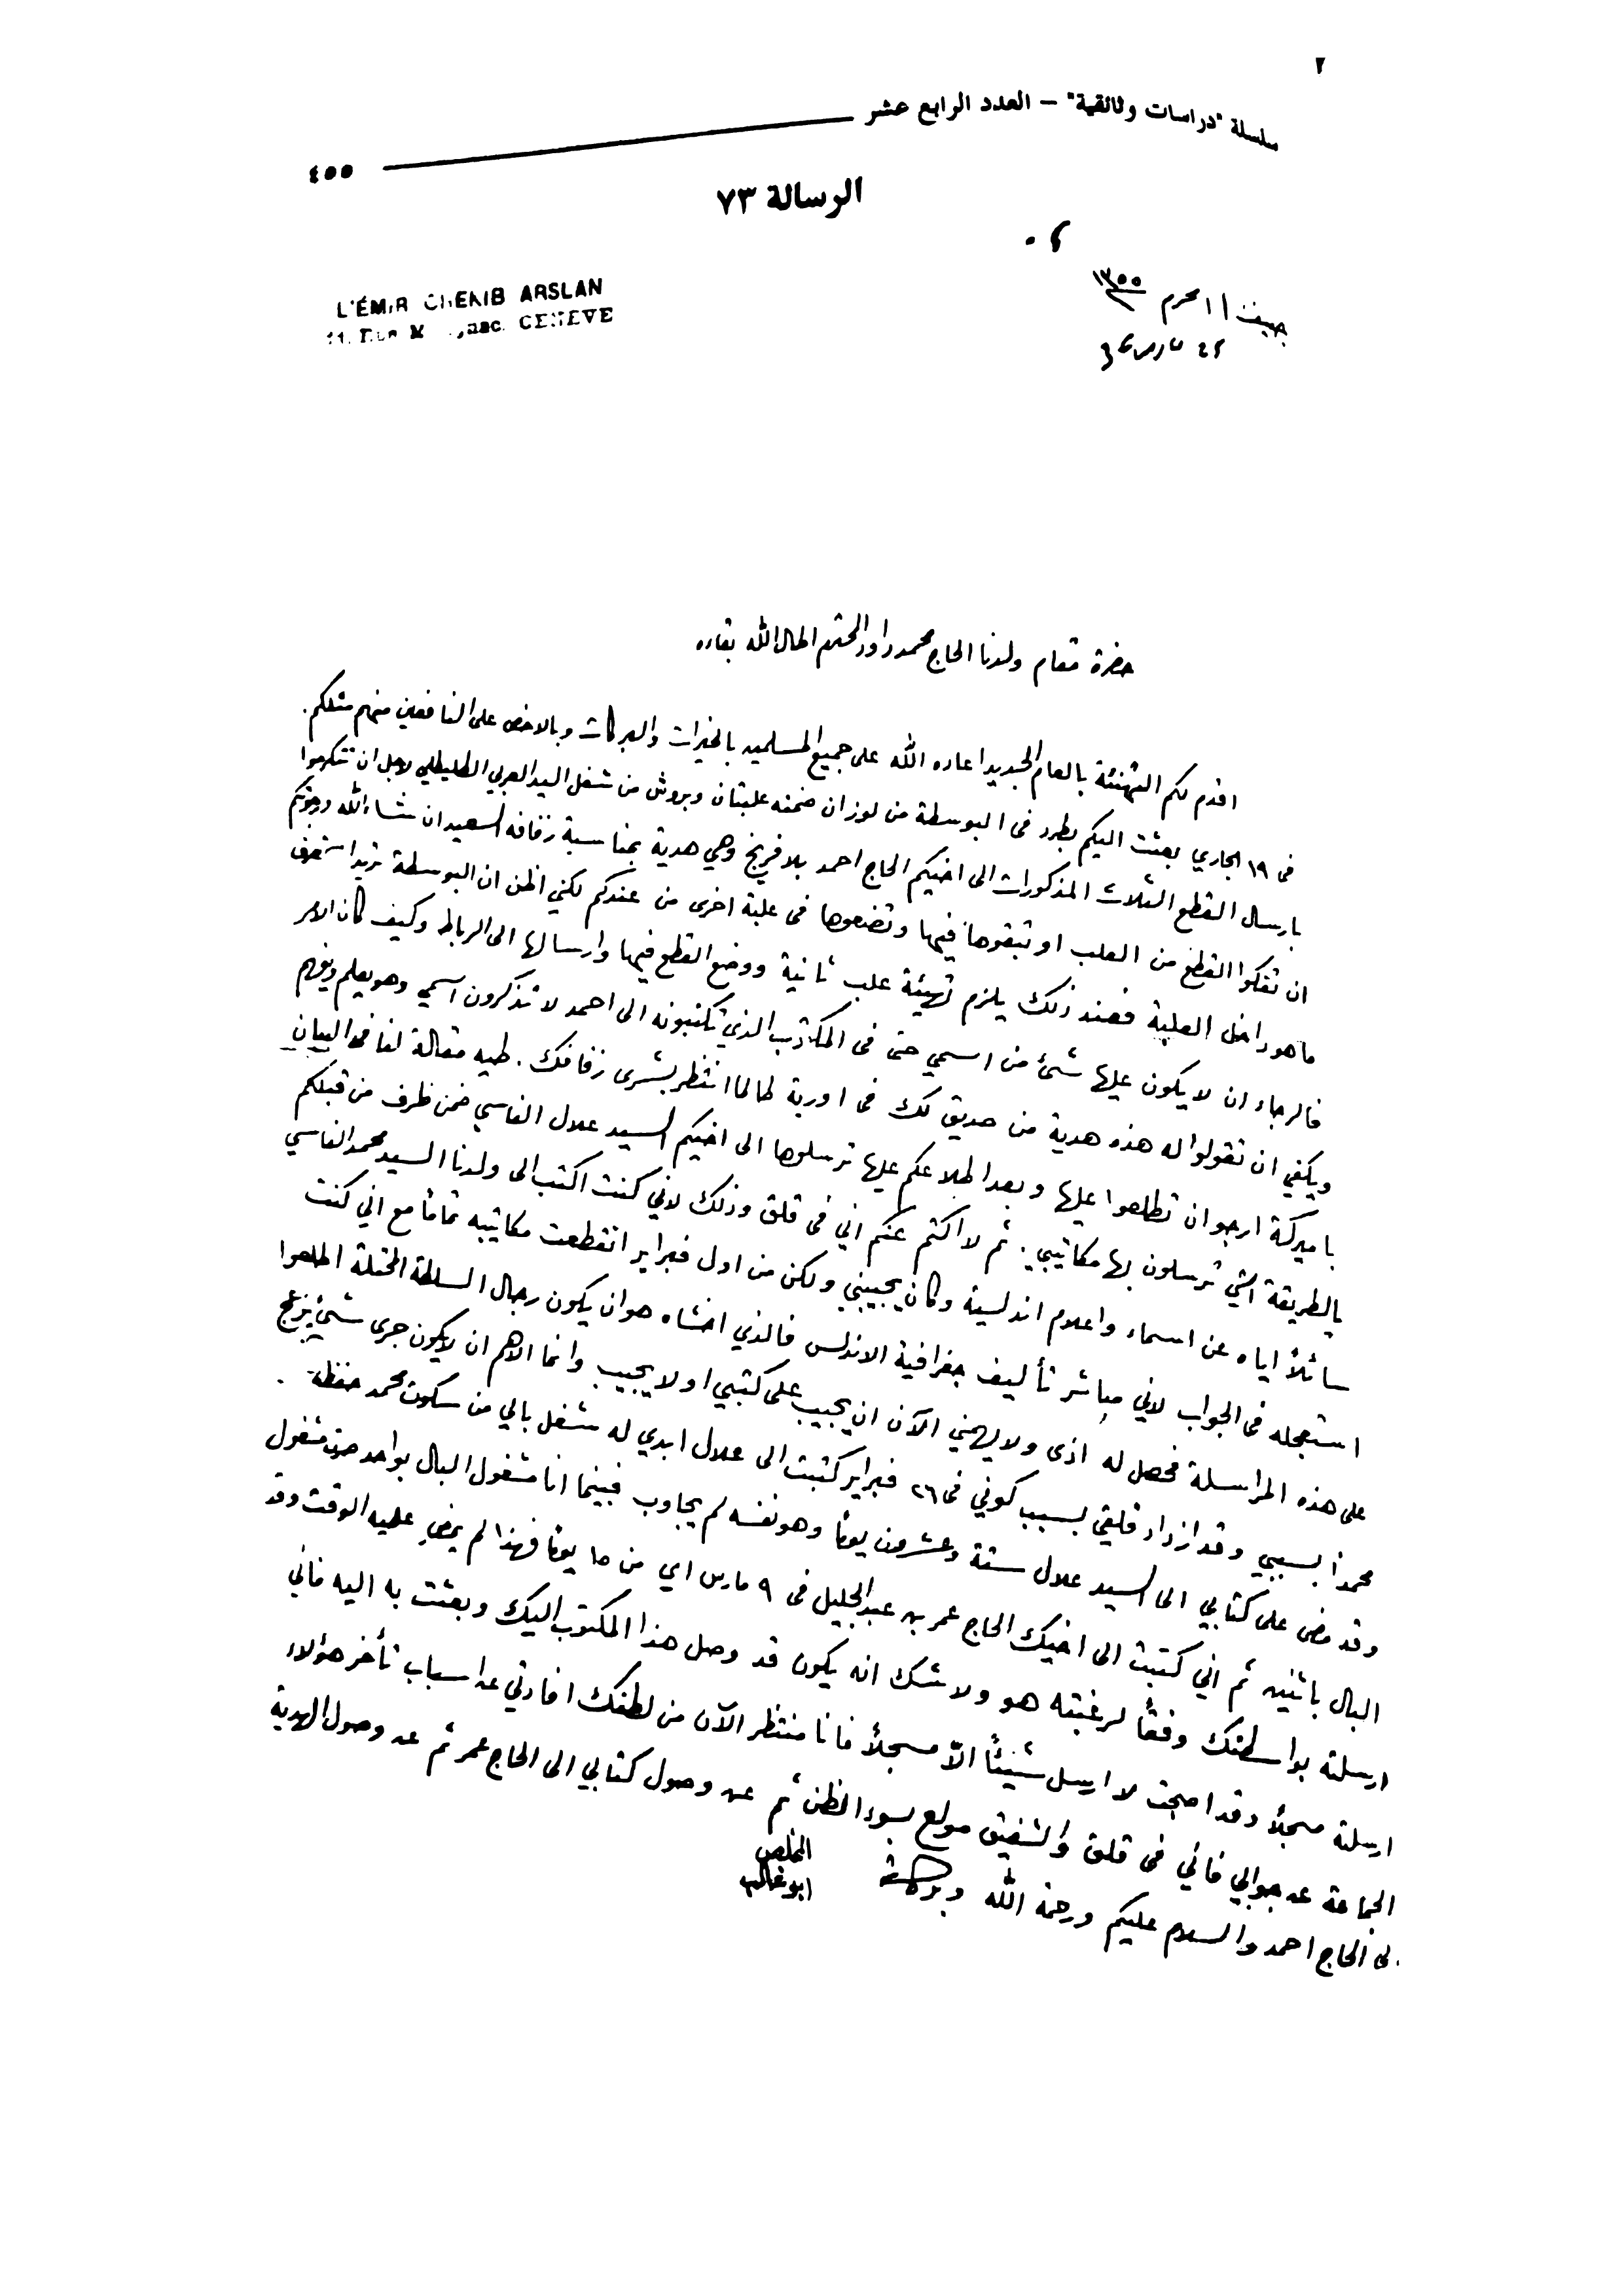 ٢
سلسلة "دراسات وثائقية" – العدد الرابع عشر
٤٥٥
الرسالة ٧٣
جنيف ١ محرم ١٣٥٥
٢٤ مارس ٣٦
L'ÉMIR CHEKIB ARSLAN
GENEVE
حضرة مقام ولدنا الحاج محمد داود المحترم اطال الله بقاءه
اقدم لكم التهنئة بالعام الجديد اعاده الله على جميع المسلمين بالخيرات والبركات وبالاخص على النافعين منهم مثلكم.
فى ١٩ الجاري بعثت اليكم بطرد فى البوسطة من لوزان ضمنه علبتان وبروش من شغل السيد العربي الطليطلي لاجل ان تتكرموا
بارسال القطع الثلاث المذكورات الى اخيكم الحاج احمد بلافريج وهي هدية بمناسبة زفافه السعيد ان شاء الله ورجوتكم
ان تفكوا القطع من العلب او تبقوها فيها وتضعوها فى علبة اخرى من عندكم لكني اظن ان البوسطة تريد
ما هو داخل العلبة فعند ذلك يلزم تهيئة علب ثانية ووضع القطع فيها وارسالها الى الرباط وكيف كان الامر
فالرجاء ان لا يكون عليها شئ من اسمي حتى فى المكتوب الذي تكتبونه الى احمد لا تذكرون اسمي وهو يعلم ويفهم
ويكفي ان تقولوا له هذه هدية من صديق لك فى اوربة طالما انتظر بشرى زفافك. طيه مقالة لنا فى البيان
باميركة ارجو ان تطلعوا عليها وبعد اطلاعكم عليها ترسلوها الى اخيكم السيد علال الفاسي ضمن ظرف من قبلكم
بالطريقة التي ترسلون بها مكاتيبي. ثم لا اكتم عنكم اني فى قلق وذلك لاني كنت اكتب الى ولدنا السيد محمد الفاسي
سائلاً اياه عن اسماء واعلام اندلسية وكان يجيبني ولكن من اول فبراير انقطعت مكاتيبه تماماً مع اني كنت
استعجله فى الجواب لاني مباشر تأليف جغرافية الاندلس فالذي اخشاه هو ان يكون رجال السلطة المحتلة اطلعوا
على هذه المراسلة فحصل له اذى ولا يهمني الآن ان يجيب على كتبي او لا يجيب وانما الاهم ان لا يكون جرى شئ يزعج
محمداً بسببي وقد ازداد قلقي بسبب كوني فى ٢٦ فبراير كتبت الى علال ابدي له شغل بالي من سكوت محمد حفظه.
وقد مضى على كتابي الى السيد علال ستة وعشرون يوماً وهو نفسه لم يجاوب فبينما انا مشغول البال بواحد صرت مشغول
البال باثنين ثم اني كتبت الى اخيك الحاج عمر بن عبد الجليل فى ٩ مارس اي من ١٥ يوماً فهذا لم يمضِ عليه الوقت وقد
ارسلته بواسطتك وفقاً لرغبته هو ولا شك انه يكون قد وصل هذا المكتوب اليك وبعثت به اليه فاني
ارسلته مسجلاً وقد اصبحت لا ارسل شيئاً الاّ مسجلاً فانا منتظر الآن من لطفك افادتي عن اسباب تأخر هؤلاء
الجماعة عن جوابي فاني فى قلق والشفيق مولع بسوء الظن ثم عن وصول كتابي الى الحاج عمر ثم عن وصول الهدية
الى الحاج احمد والسلام عليكم ورحمة الله وبركاته
المخلص
ابو غالب